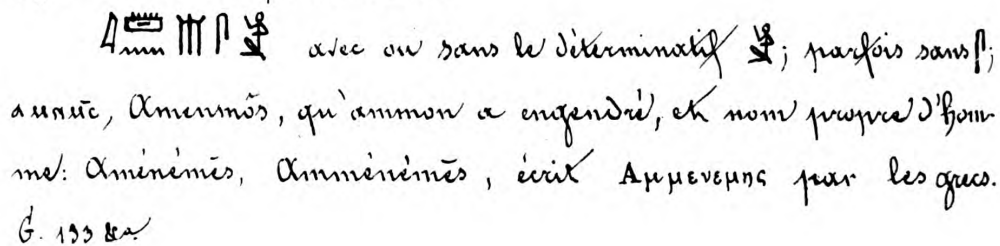 𓇋𓏠𓈖𓄟𓋴𓀭 avec ou sans le déterminatif 𓀭; parfois sans 𓋴;
Amenmōs, qu'ammon a engendré, et nom propre d'hom-
me: Aménémēs, Amménémēs, écrit Αμμενεμης par les grecs.
G. 133 &a.